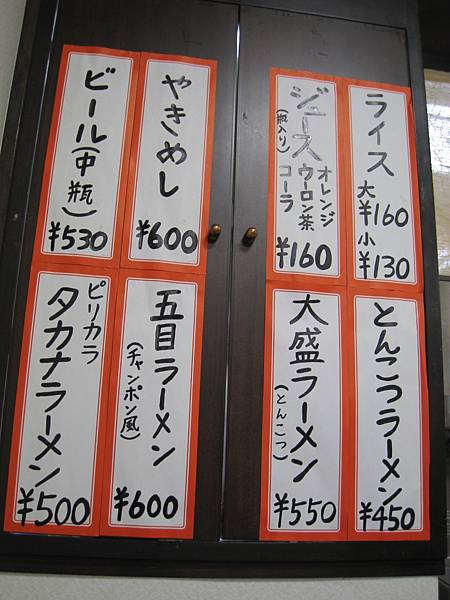 ライス
大¥160
小
¥130
ジュース
(瓶入り)
オレンジ
ウーロン茶
コーラ
¥160
やきめし
¥600
ビール(中瓶)
¥530
とんこつラーメン
¥450
大盛ラーメン
(とんこつ)
¥550
五目ラーメン
(チャンポン風)
¥600
ピリカラ
タカナラーメン
¥500